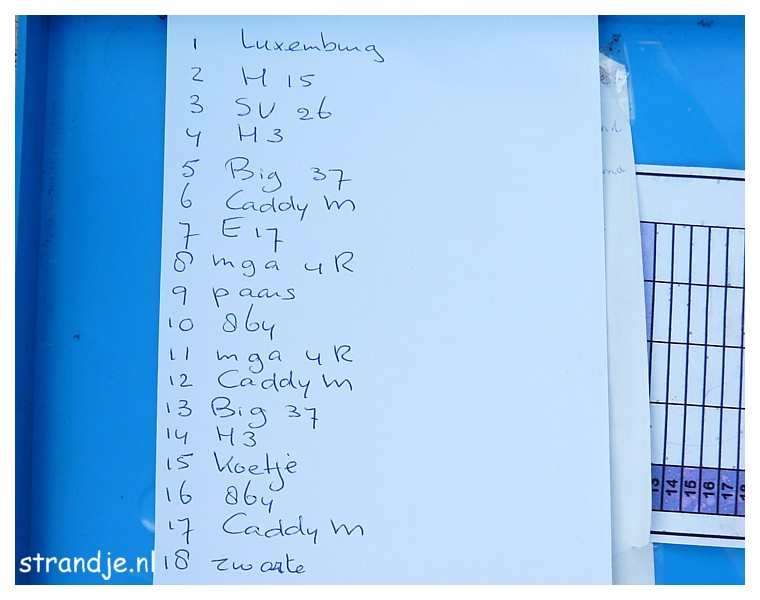 1 Luxemburg
2 H 15
3 SV 26
4 H3
5 Big 37
6 Caddy M
7 E 17
8 mga 4R
9 paars
10 864
11 mga 4R
12 Caddy M
13 Big 37
14 H3
15 Koetje
16 864
17 Caddy M
18 zwarte
13 14 15 16 17 18
strandje.nl